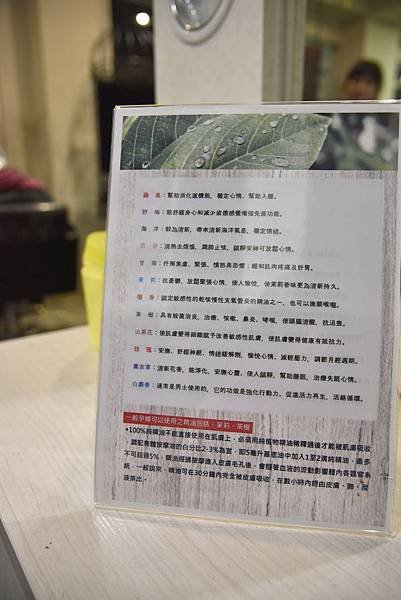 幫助消化返機能、穩定心情、幫助入睡。
野 橘：能舒緩身心和減少疲憊感覺增強免疫功能。
海 洋：較為清新、帶來清新海洋氣息、穩定情緒。
百 合：清熱去煩燥、潤肺止咳、鎮靜安神可放鬆心情。
甘 菊：抒解焦慮、緊張、憤怒與恐懼；緩和肌肉疼痛及舒胃。
茉 莉：抗憂鬱、放鬆緊張心情、使人愉悅、使茉莉香味更為清新持久。
檀 香：鎮定敏感性的乾咳慢性支氣管炎的精油之一、也可以撫順喉嚨。
茶 樹：具有殺菌消炎、治療、咳嗽、鼻炎、哮喘、使頭腦清醒、抗沮喪。
山茶花：使肌膚變得細緻賦予改善敏感性肌膚、使肌膚變得健康有抵抗力。
玫 瑰：安撫、舒緩神經、情緒緩解劑、愉悅心情、減輕壓力、調節月經週期。
薰衣草：清新花香、能淨化、安撫心靈、使人鎮靜、幫助睡眠、治療失眠心情。
白麝香：通常是男士使用的、它的功做是強化行動力、促進活力再生、活絡循環。
一般孕婦可以使用之精油包括、茉莉、茶樹
*100%純精油不能直接使用在肌膚上、必須用純植物精油稀釋過後才能被肌膚吸收
調配身體按摩油的百分比2-3%為宜，即5毫升基底油中加入1至2滴純精油，最多
不可超過5%，精油經過按摩進入皮膚毛孔後，會隨著血液的流動影響體內各器官系
統，一般說來，精油可在30分鐘內完全被皮膚吸收，在數小時內經由皮膚、肺、尿
液排出。